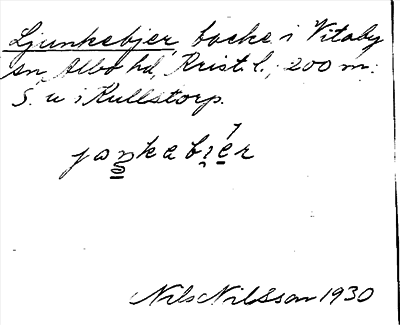 Ljunkebjer, backe i Vitaby
sn, Albo hd, Krist. l., 200 m.
S. u i Kullstorp.
Nils Nilsson 1930